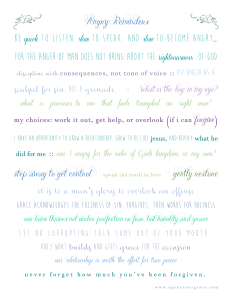 Anger Reminders
BE quick TO LISTEN, slow TO SPEAK, AND slow TO BECOME ANGRY...
FOR THE ANGER OF MAN DOES NOT BRING ABOUT THE righteousness OF GOD
discipline with consequences, not tone of voice :: is anger as a
scalpel for sin, not a grenade :: what is the log in my eye?
what is precious to me that feels trampled on right now?
my choices: work it out, get help, or overlook (if i can forgive)
I HAVE AN OPPORTUNITY TO GROW A RELATIONSHIP, GROW TO BE LIKE jesus, AND REPEAT what he
did for me :: am i angry for the sake of God's kingdom or my own?
step away to get context speak the truth in love gently restore
it is to a man's glory to overlook an offense
GRACE ACKNOWLEDGES THE FULLNESS OF SIN, FORGIVES, THEN WORKS FOR HOLINESS
LET NO CORRUPTING TALK COME OUT OF YOUR MOUTH,
ONLY WHAT builds AND GIVES grace FOR THE occasion
our relationship is worth the effort for true peace
never forget how much you've been forgiven.